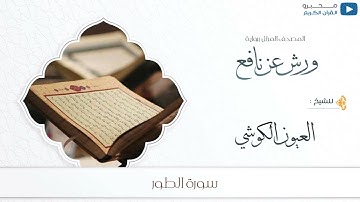 مخبرو
القرآن الكريم
المصحف المنزل برواية
ورش عن نافع
للشيخ :
العيون الكوشي
سورة الطور